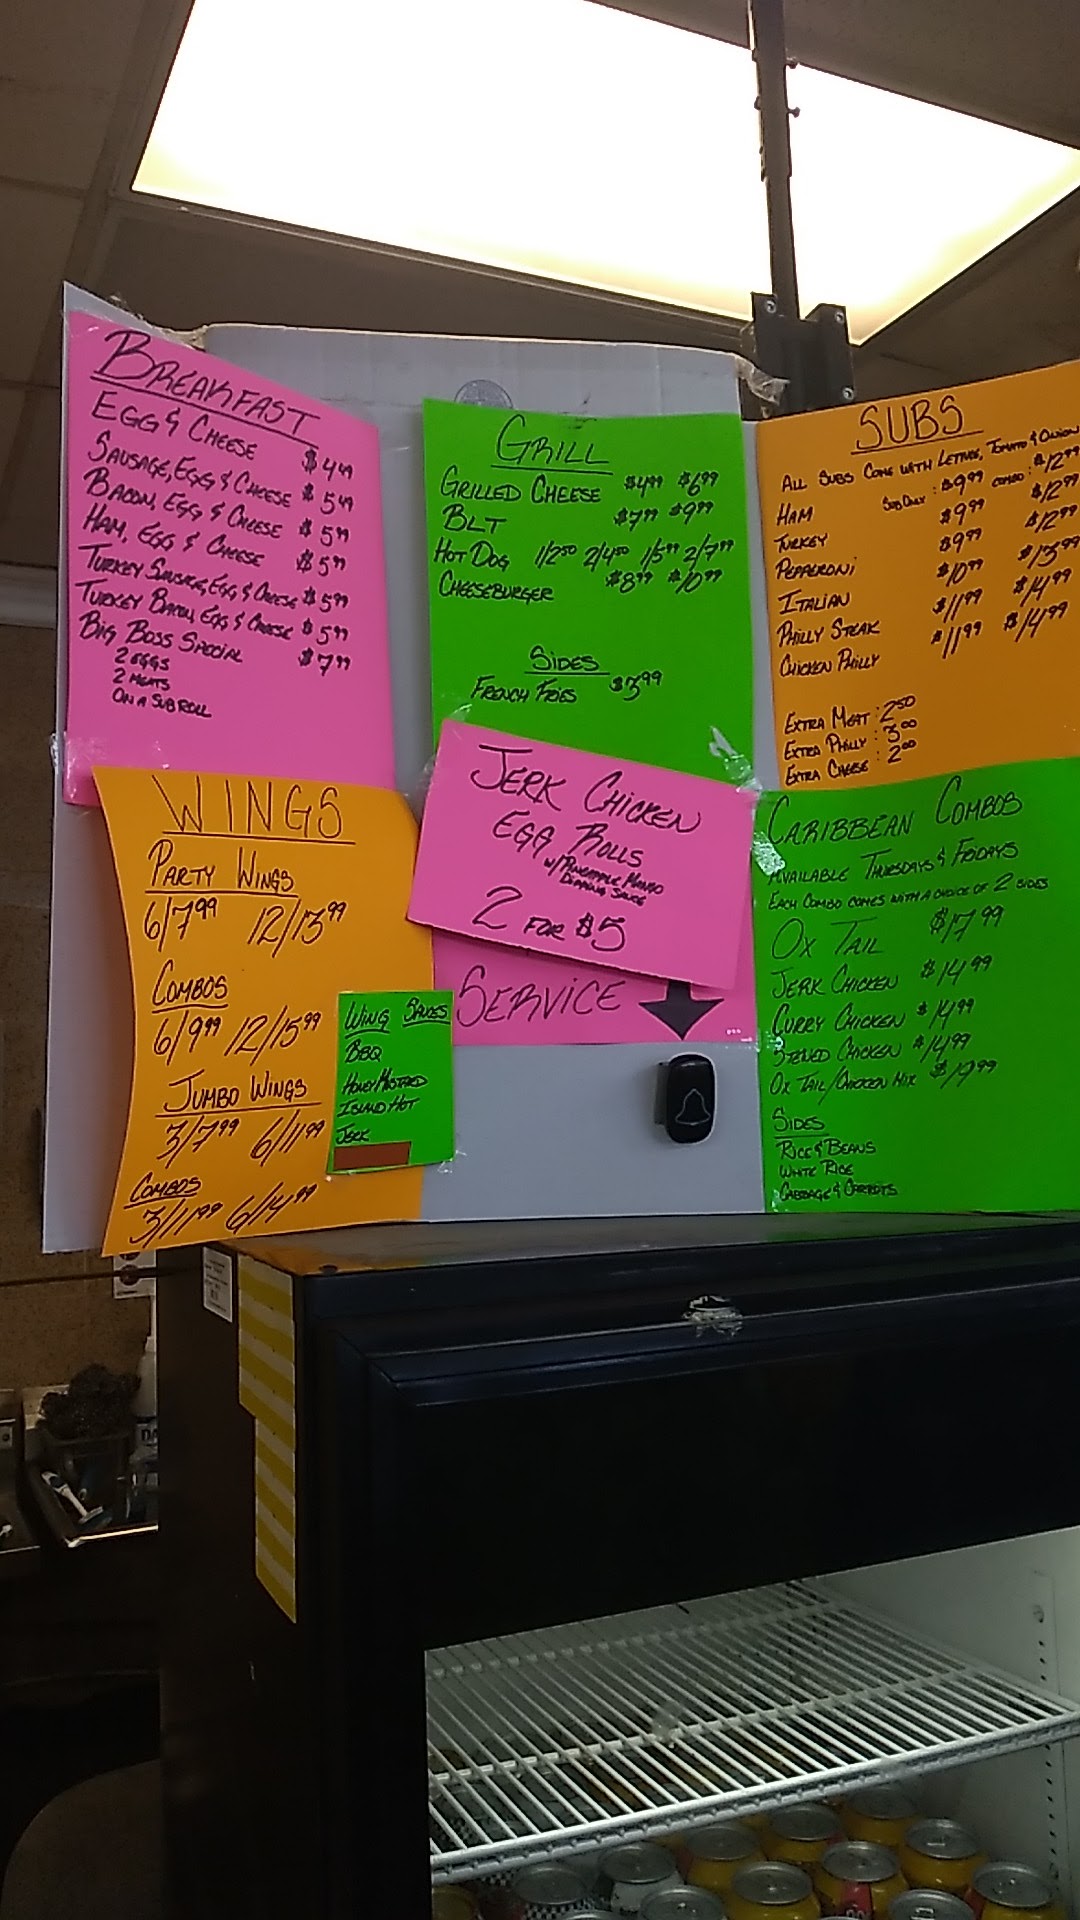 BREAKFAST
EGG & CHEESE $4.49
SAUSAGE, EGG & CHEESE $5.49
BACON, EGG & CHEESE $5.99
HAM, EGG & CHEESE $5.99
TURKEY SAUSAGE, EGG & CHEESE $5.99
TURKEY BACON, EGG & CHEESE $5.99
BIG BOSS SPECIAL $7.99
2 EGGS
2 MEATS
ON A SUB ROLL
GRILL
GRILLED CHEESE $4.99 $6.99
BLT $7.99 $9.99
HOT DOG 1/2.50 2/4.50 1/5.99 2/7.99
CHEESEBURGER $8.99 $10.99
SIDES
FRENCH FRIES $3.99
SUBS
ALL SUBS COME WITH LETTUCE, TOMATO & ONION
SUB ONLY: COMBO:
HAM $9.99 $12.99
TURKEY $9.99 $12.99
PEPPERONI $9.99 $12.99
ITALIAN $10.99 $13.99
PHILLY STEAK $11.99 $14.99
CHICKEN PHILLY $11.99 $14.99
EXTRA MEAT: 2.50
EXTRA PHILLY: 3.00
EXTRA CHEESE: 2.00
WINGS
PARTY WINGS
6/7.99 12/13.99
COMBOS
6/9.99 12/15.99
JUMBO WINGS
3/7.99 6/11.99
COMBOS
3/11.99 6/14.99
WING SAUCES
BBQ
HONEY MUSTARD
ISLAND HOT
JERK
JERK CHICKEN
EGG ROLLS
W/ PINEAPPLE MANGO
DIPPING SAUCE
2 FOR $5
SERVICE
CARIBBEAN COMBOS
AVAILABLE THURSDAYS & FRIDAYS
EACH COMBO COMES WITH A CHOICE OF 2 SIDES
OX TAIL $17.99
JERK CHICKEN $14.99
CURRY CHICKEN $14.99
STEWED CHICKEN $14.99
OX TAIL/CHICKEN MIX $19.99
SIDES
RICE & BEANS
WHITE RICE
CABBAGE & CARROTS